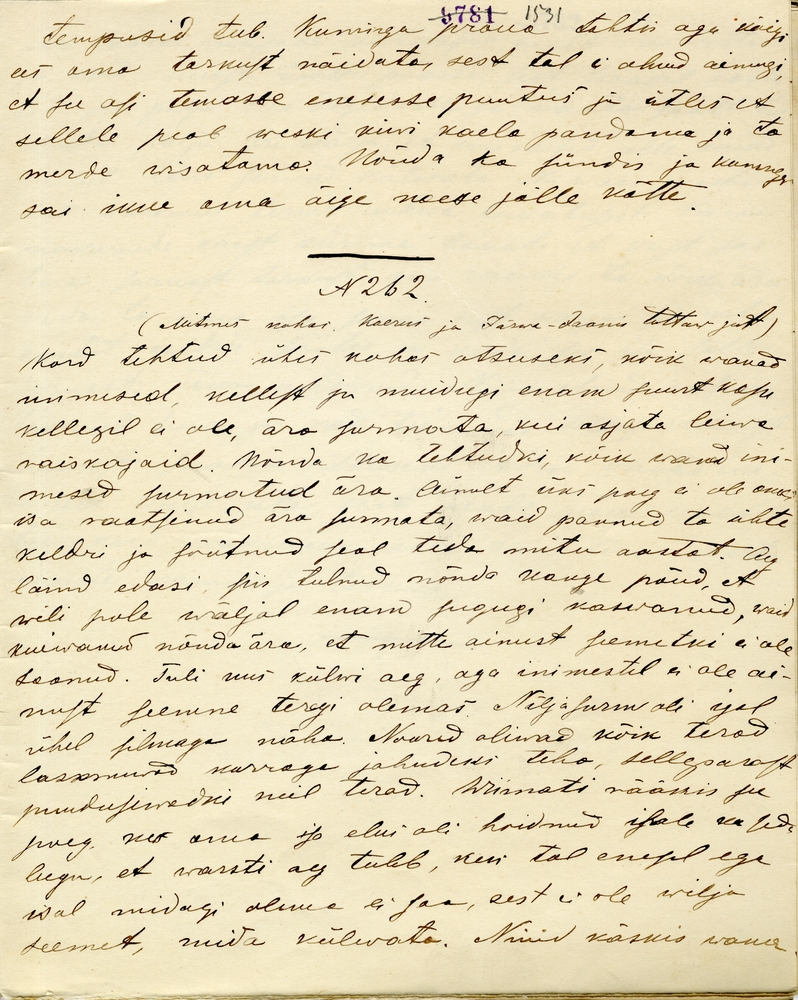 5781 1531
tempusid tub. Kuninga proua tahtis aga kõigi
ees oma tarkust näidata, sest tal ei olnud aimugi,
et see asi temasse enesesse puutus ja ütles et
sellele peab weski kiwi kaela pandama ja ta
merde wisatama. Nõnda ka sündis ja kuningas
sai uue oma õige naese jälle kätte.
N 262.
(Mitmes kohas. Koerus ja Järwa-Jaanis tuttaw jutt)
Kord tehtud ühes kohas otsuseks, kõik wanad
inimesed, kellest ju muidugi enam suurt kasu
kellegil ei ole, ära surmata, kui asjata leiwa
raiskajaid. Nõnda ka tehtudki, kõik wanad ini-
mesed surmatud ära. Ainult üks poeg ei ole oma
isa raatsinud ära surmata, waid pannud ta ühte
keldri ja söötnud seal teda mitu aastat. Aeg
läind edasi, siis tulnud nõnda kange põud, et
wili pole wäljal enam sugugi kaswanud, waid
kuiwanud nõnda ära, et mitte ainust seemetki ei ole
saanud. Tuli uus külwi aeg, aga inimestel ei ole ai-
nust seemne teragi olemas. Näljasurm oli igal
ühel silmaga näha. Noored oliwad kõik terad
lasknuwad korraga jahudeks teha, sellepärast
puudusiwadki neil terad. Wiimati rääkis see
poeg kes oma isa elus oli hoidnud isale ka seda
lugu, et warsti aeg tuleb, kus tal enesel ega
isal midagi olema ei saa, sest ei ole wilja
seemet, mida külwata. Nüüd käskis wana